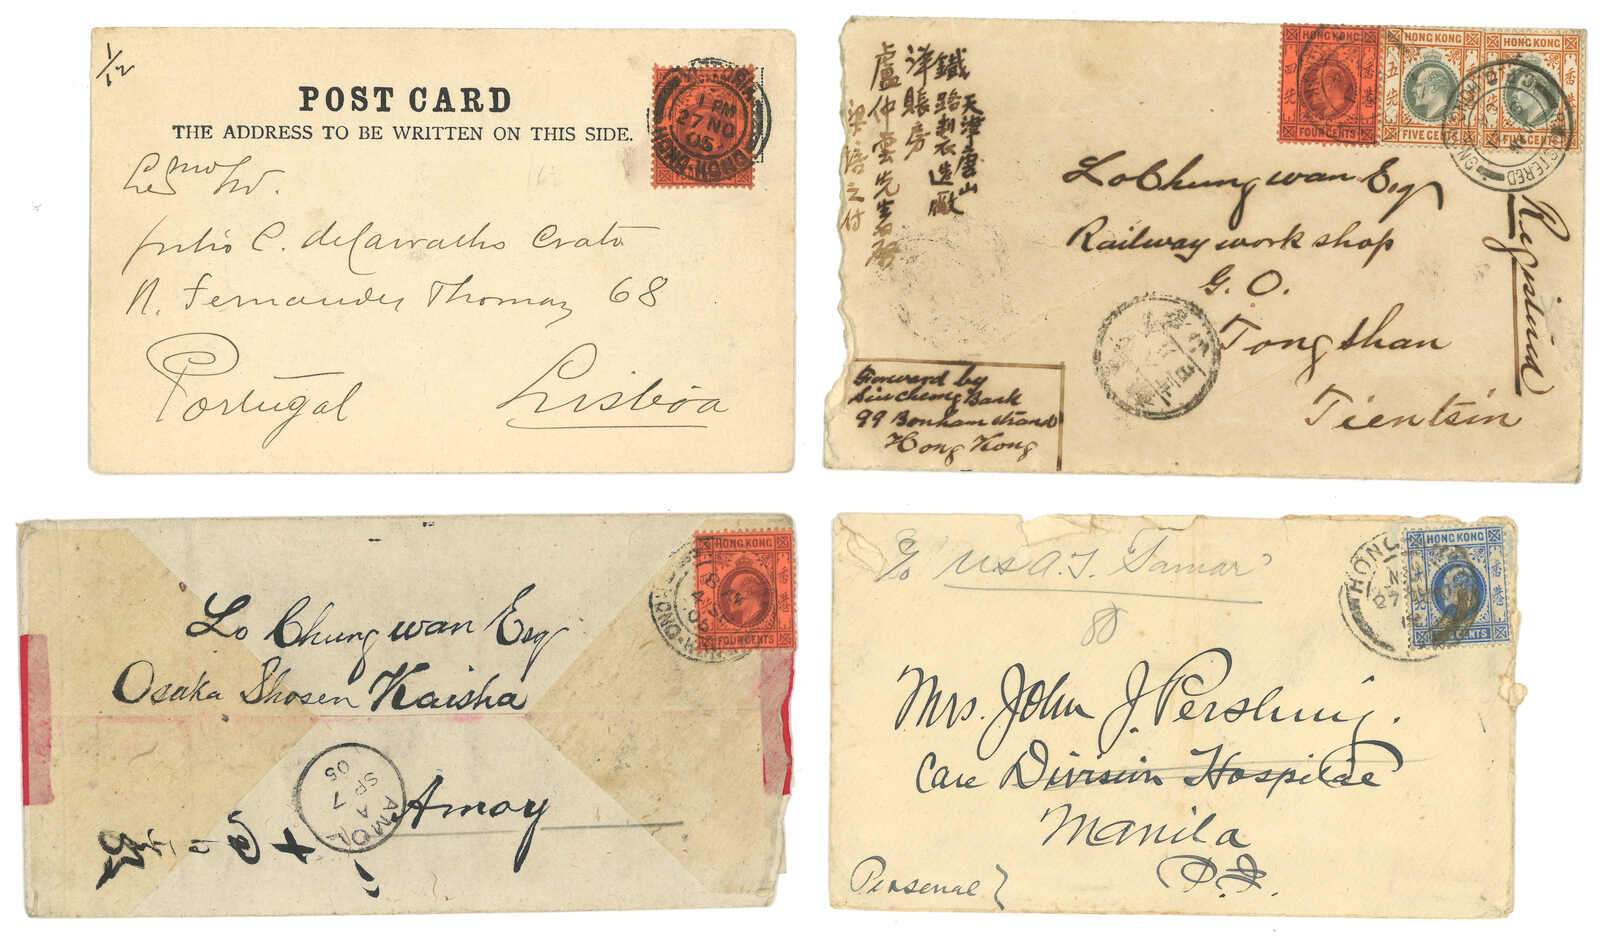 1/12
POST CARD
THE ADDRESS TO BE WRITTEN ON THIS SIDE.
1 PM
27 NO
05
HONG-KONG
Julio C. de Carvalho Crato
R. Fernandes Thomaz 68
Portugal Lisbôa
HONG KONG
四先
香港
FOUR CENTS
HONG KONG
五先
FIVE CENTS
HONG KONG
香港
FIVE CENTS
REGISTERED
天津唐山
鐵路製衣造廠
津賬房
盧仲雲先生
梁
付
Lo Chung wan Esq
Railway work shop
G. O.
Tong shan
Tientsin
Registered
Forward by
Sui cheong Bank
99 Bonham Strand
Hong Kong
HONG KONG
FOUR CENTS
Lo Chung wan Esq
Osaka Shosen Kaisha
Amoy
AMOY
A
SP 7
05
HONG KONG
香港
CENTS
HONG
c/o USA.T. Samar
Mrs. John J. Pershing.
Care Division Hospital
Manila
P.I.
Personal